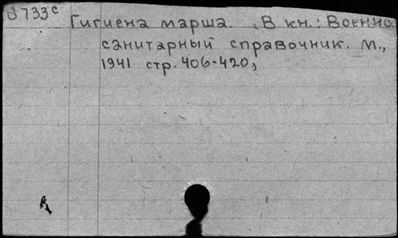 733с
Гигиена марша. В кн.: Военно-
санитарный справочник. М.,
1941 стр. 406-420,